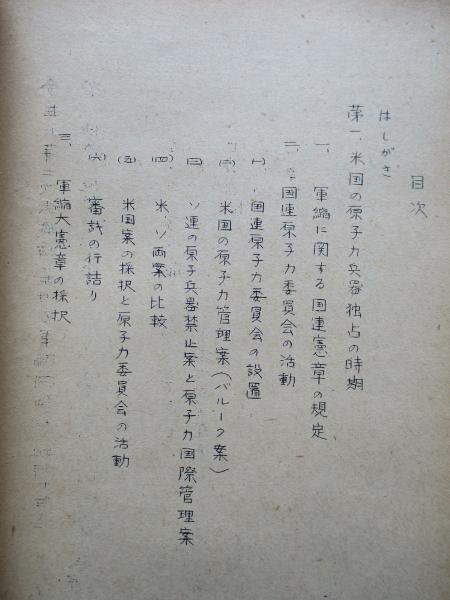 目次
はしがき
第一、米国の原子力兵器独占の時期
一、軍縮に関する国連憲章の規定
二、国連原子力委員会の活動
(一) 国連原子力委員会の設置
(二) 米国の原子力管理案(バルーク案)
(三) ソ連の原子兵器禁止案と原子力国際管理案
(四) 米、ソ両案の比較
(五) 米国案の採択と原子力委員会の活動
(六) 審議の行詰り
三、軍縮大憲章の採択